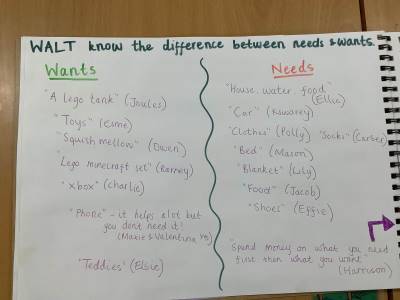 WALT know the difference between needs & wants.
Wants
"A lego tank" (Joules)
"Toys" (Esmé)
"Squish mellow" (Owen)
"Lego minecraft set" (Barney)
"xbox" (Charlie)
"Phone" - it helps alot but
you don't need it!
(Maxie & Valentina
"Teddies" (Elsie)
Needs
"House, water, food"
(Ellie)
"Car"
"Clothes" (Polly) "Socks" (Carter)
"Bed" (Mason)
"Blanket" (Lily)
"Food" (Jacob)
"Shoes" (Effie)
"Spend money on what you need
first then what you want"
(Harrison)